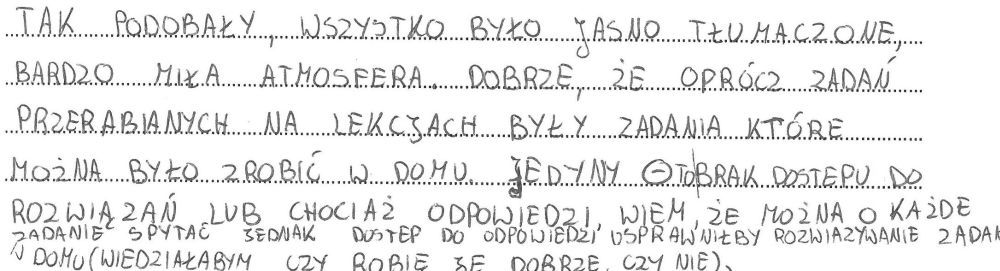 TAK PODOBAŁY, WSZYSTKO BYŁO JASNO TŁUMACZONE,
BARDZO MIŁA ATMOSFERA. DOBRZE, ŻE OPRÓCZ ZADAŃ
PRZERABIANYCH NA LEKCJACH BYŁY ZADANIA KTÓRE
MOŻNA BYŁO ZROBIĆ W DOMU. JEDYNY ⊖ TO BRAK DOSTEPU DO
ROZWIĄZAŃ LUB CHOCIAŻ ODPOWIEDZI, WIEM, ŻE MOŻNA O KAŻDE
ZADANIE SPYTAĆ JEDNAK DOSTEP DO ODPOWIEDZI USPRAWNIŁBY ROZWIAZYWANIE ZADAŃ
W DOMU (WIEDZIAŁABYM CZY ROBIE JE DOBRZE, CZY NIE).